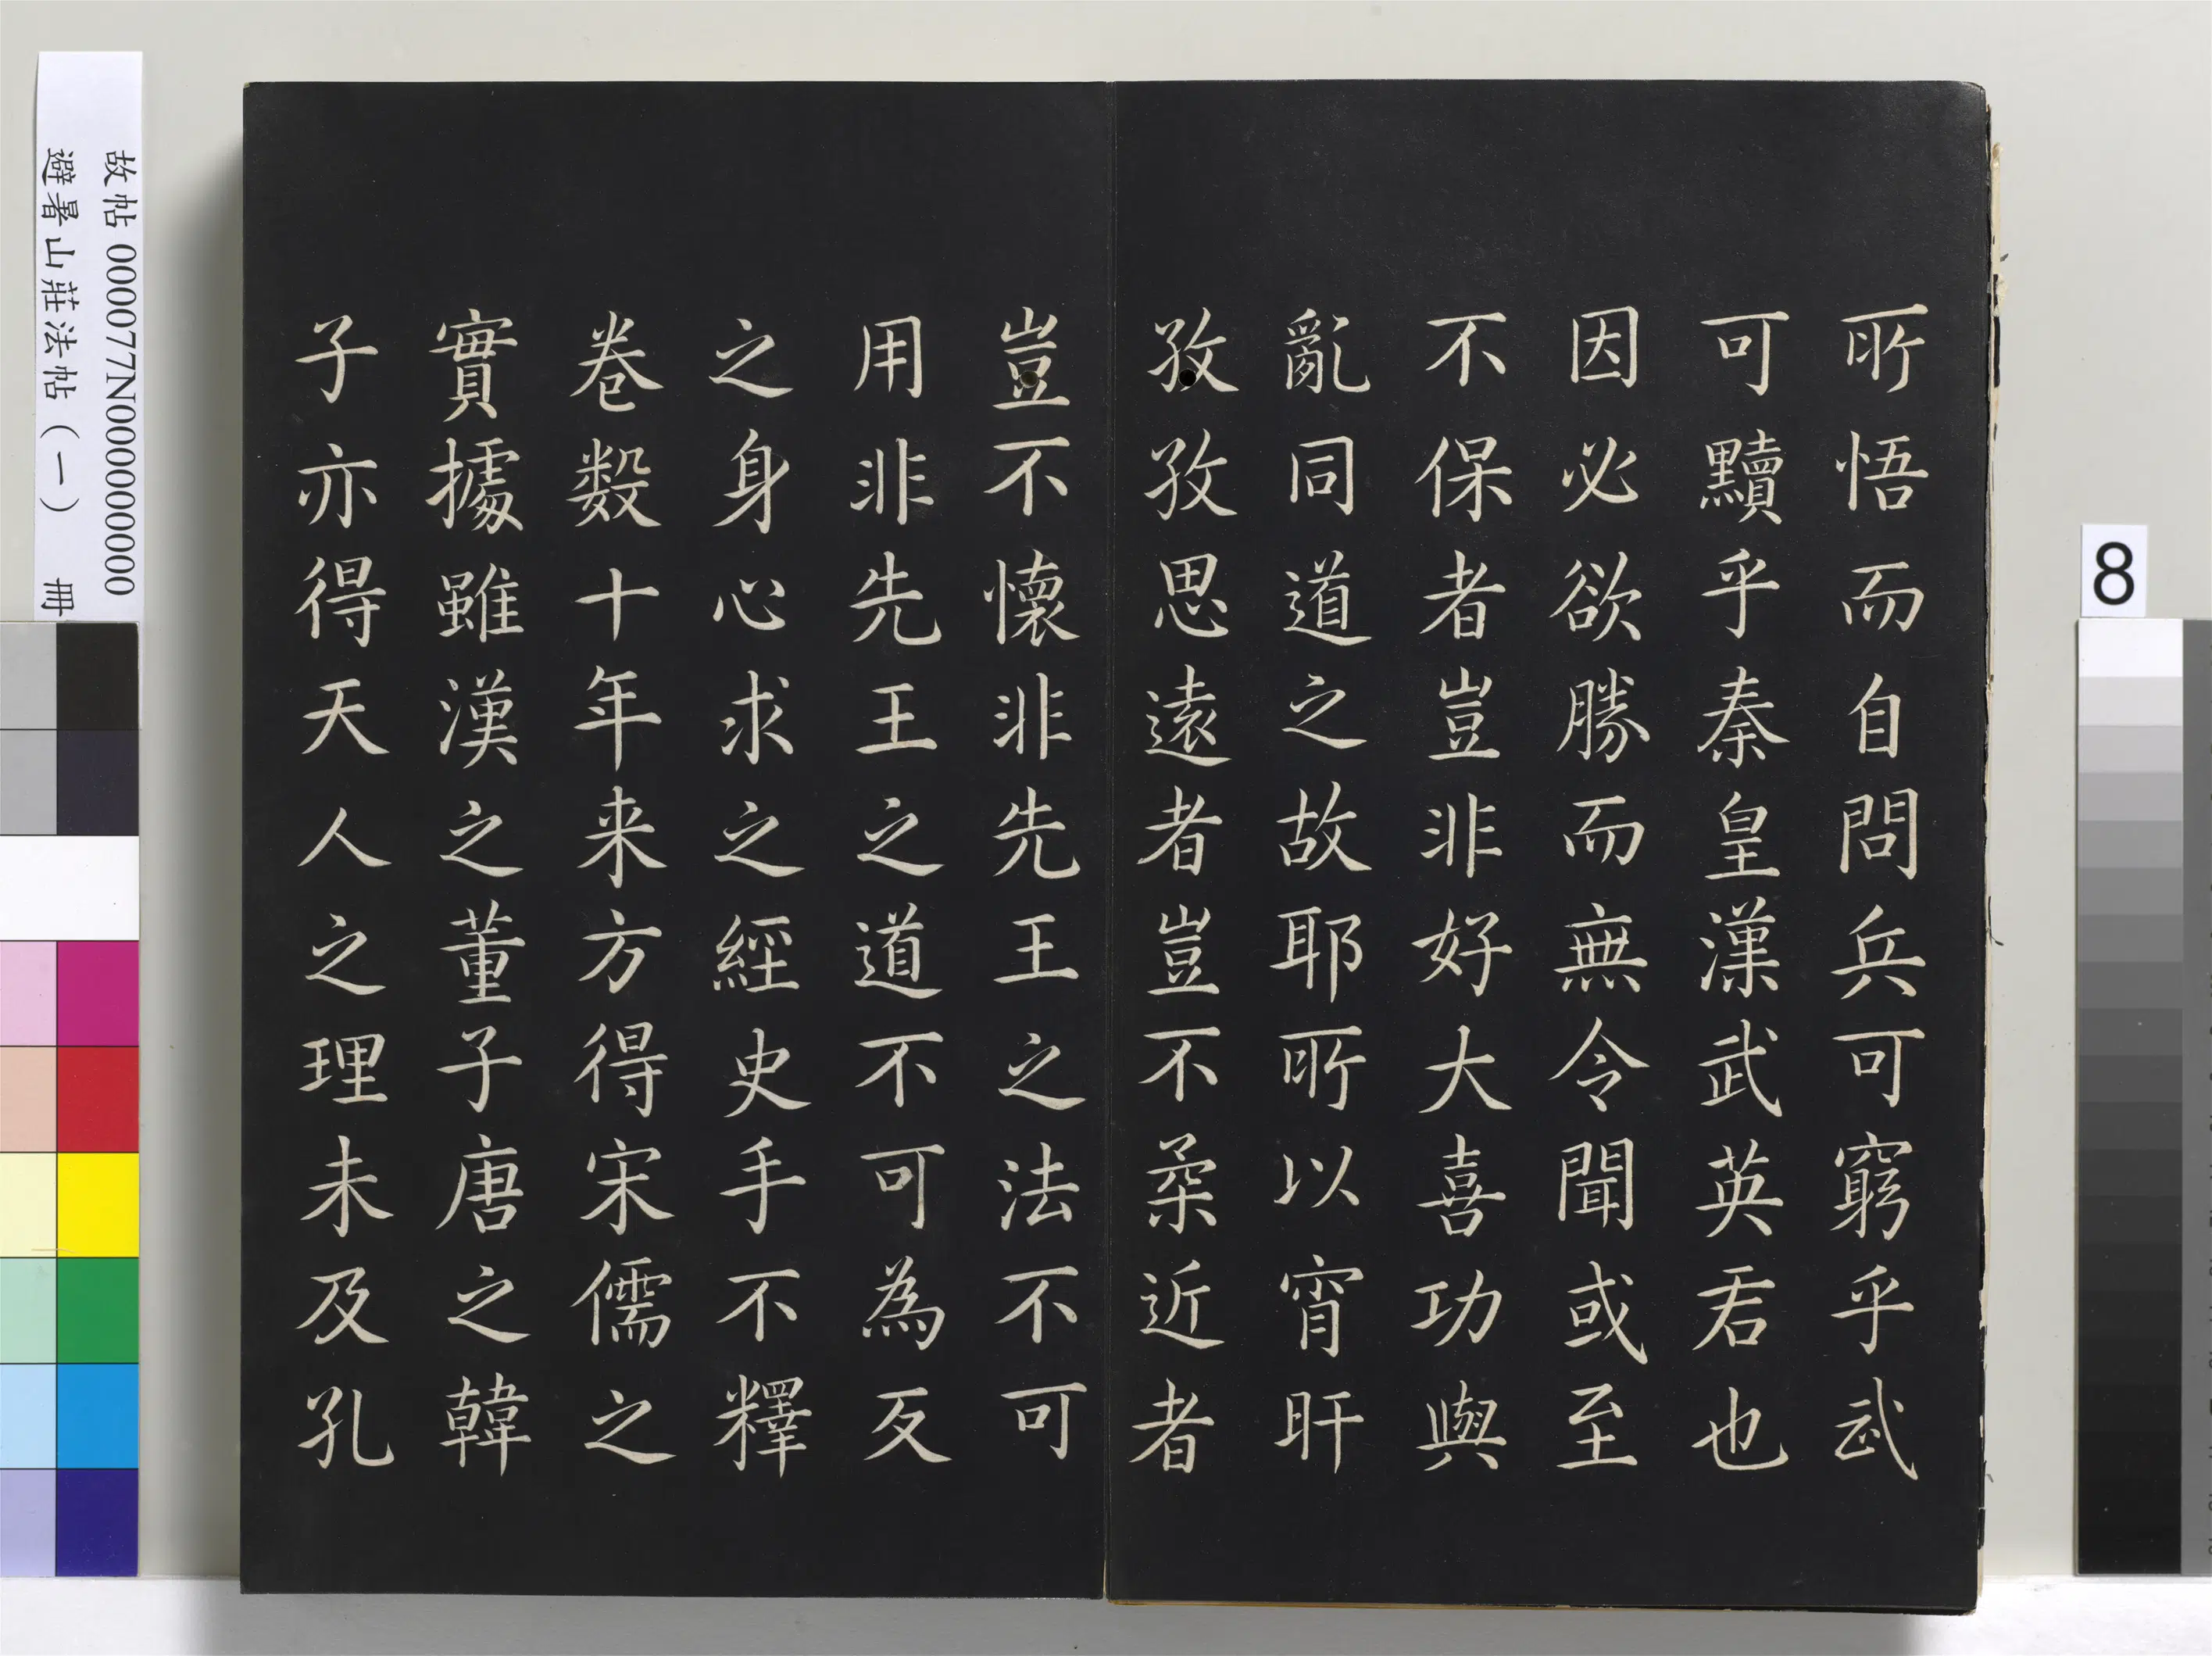 所悟而自問兵可窮乎武
可黷乎秦皇漢武英君也
因必欲勝而無令聞或至
不保者豈非好大喜功與
亂同道之故耶所以宵旰
孜孜思遠者豈不柔近者
豈不懷非先王之法不可
用非先王之道不可為反
之身心求之經史手不釋
卷數十年来方得宋儒之
實據雖漢之董子唐之韓
子亦得天人之理未及孔
故帖 000077N000000000
避暑山莊法帖(一) 冊
8